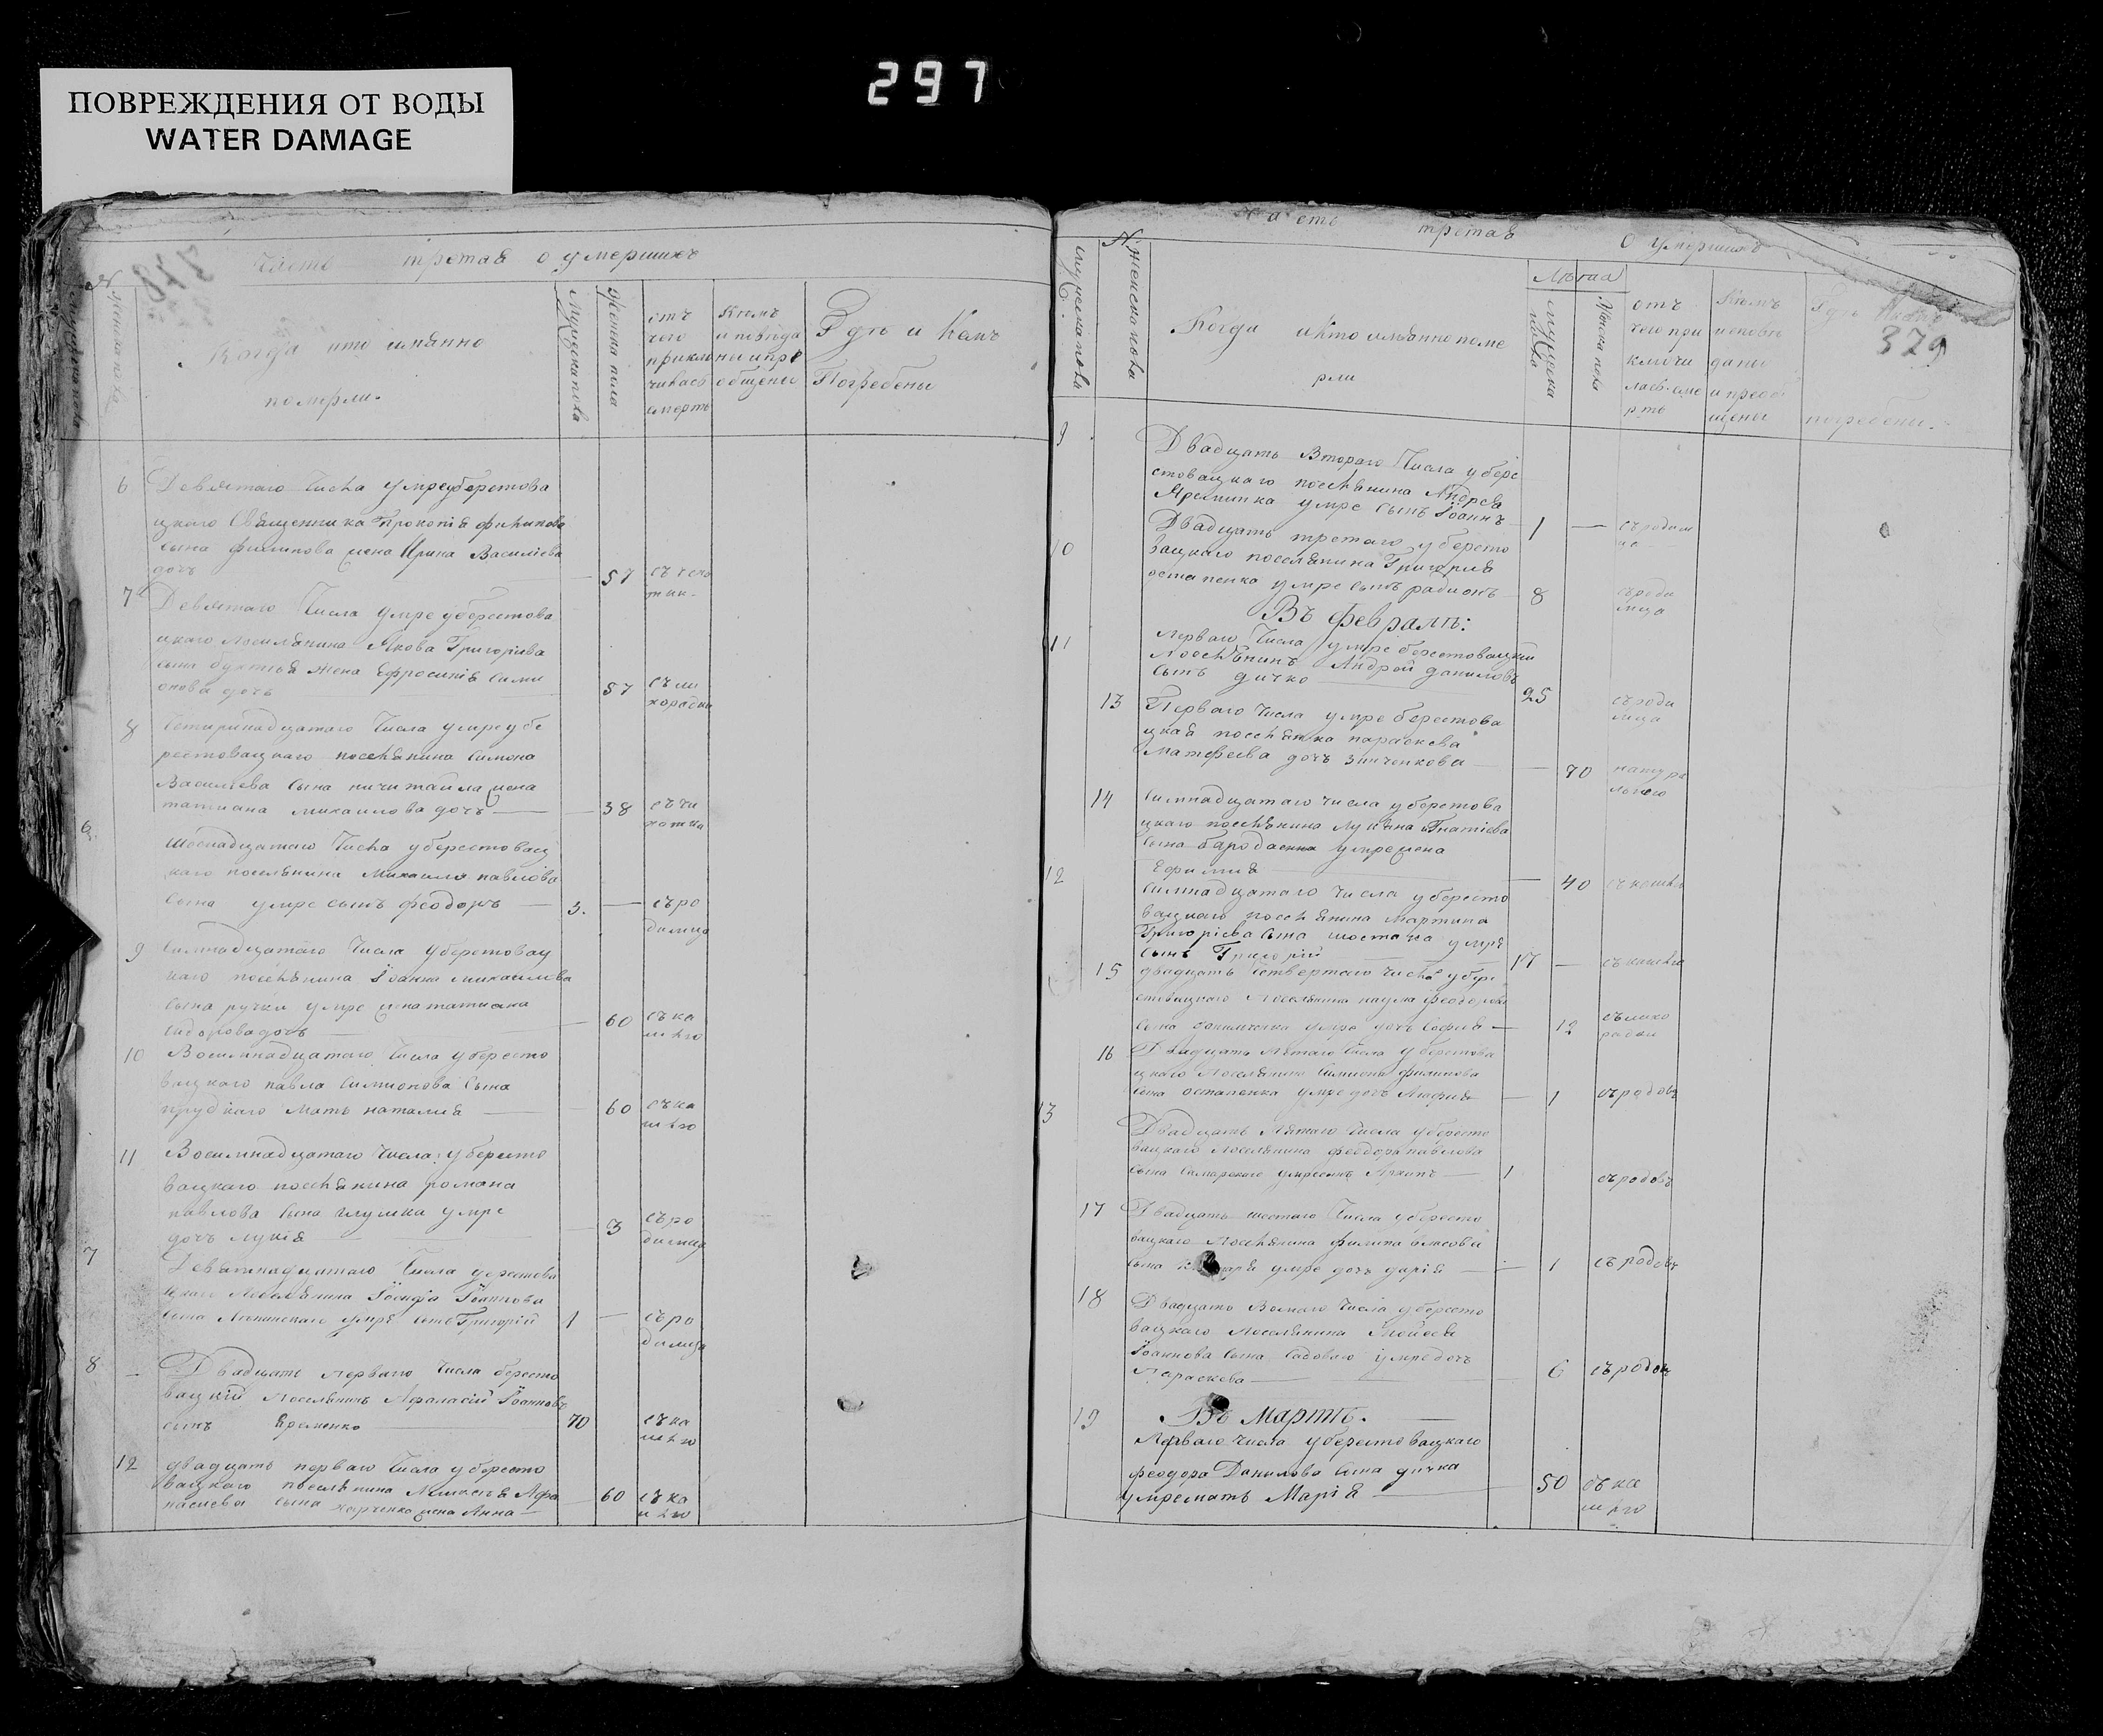 297
ПОВРЕЖДЕНИЯ ОТ ВОДЫ
WATER DAMAGE
Часть третая о умершихъ
Когда кто имянно
померли.
Мужеска пола
Женска пола
отъ
чего
приклю
чилась
смерть
Кемъ
исповеда
ны и прі
общены
Где и Кемъ
Погребены
6 Девятаго Числа умре уберестова
цкого Священника Прокопія Филипова
сына Филипова жена Ирина Василіева
дочъ 57
7 Девятаго Числа умре уберестова
цкаго поселянина Якова Григоріева
сына жена Ефросинія Сими
онова дочъ 57 съ ли
хорадки
8 Четиринадцатаго Числа умре убе
рестовацкаго поселянина Симона
Василіева Сына жена
татиана михаилова дочъ 38
6
шеснадцатаго Числа уберестовац
каго поселянина Михаила павлова
сына умре сынъ феодоръ — 3. — съро
димца
9 Симнадцатаго Числа уберестовац
каго поселянина Іоанна михаилова
сына ручки умре жена татиана
сидорова дочъ 60 съка
шлю
10 Восимнадцатаго Числа убересто
вацкаго павла Симионова Сына
прудкаго мать наталия 60 съка
шлю
11 Восимнадцатаго Числа убересто
вацкаго поселянина романа
павлова Сына умре
дочъ лукія 3 съро
димца
7 Девятнадцатаго Числа уберестова
цкаго поселянина Іосифа Іоаннова
сына умре сынъ Григорій 1 — съро
димца
8 Двадцать перваго Числа бересто
вацкій поселянинъ Афанасій Іоанновъ
сынъ Еременко 70 съка
шлю
12 двадцать перваго Числа убересто
вацкаго поселянина Афа
насиева сына харченко жена Анна 60 съка
шлю
Часть третая о умершихъ
379
Мужеска пола
№ Женска пола
Когда и Кто имянно поме
рли
Лета
Мужеска пола
Женска пола
отъ
чего при
ключи
лась сме
рть
Кемъ
исповѣ
даны
и преоб
щены
Где
погребены.
9 Двадцать Втораго Числа убере
стовацкаго поселянина Андрея
Яременка умре Сынъ Іоаннъ 1 — съродим
ца
10 Двадцать третаго убересто
вацкаго поселянина Григория
остапенка умре Сынъ радионъ 8 съроди
мца
Въ Февралѣ:
11 Перваго Числа умре берестовацкій
поселянинъ Андрей даниловъ
сынъ дичко 25 съроди
мца
13 Перваго Числа умре берестова
цкая поселянка параскева
Матфеева дочъ зинченкова — 70 натура
льною
14 Симнадцатаго Числа уберестова
цкаго поселянина Лукяна Игнатіева
Сына умре жена
Ефимия — 40 съкашлю
12 Симнадцатаго Числа убересто
вацкаго поселянина Мартина
Григоріева Сына шостака умре
сынъ Григорій 17 — съкашлю
15 двадцать Четвертаго Числа убере
стовацкаго поселянина наума феодорова
сына умре дочъ Софія — 12 сълихо
радки
16 Двадцать Пятаго Числа уберестова
цкаго Поселянина Симиона филипова
сына остапенка умре дочъ — 1 съродов
13 Двадцать Пятаго Числа убересто
вацкаго Поселянина феодора павлова
сына Самарскаго умре сынъ Архипъ 1 съродовъ
17 Двадцать шестаго Числа убересто
вацкаго Поселянина филипа
сына умре дочъ дарія — 1 съродовъ
18 Двадцать Числа убересто
вацкаго Поселянина Моисея
Іоаннова Сына Садоваго умре дочъ
Параскева 6 съродов
Въ Мартѣ.
19 Перваго Числа уберестовацкаго
феодора Данилова Сына дичка
умре мать Марія 50 съка
шлю